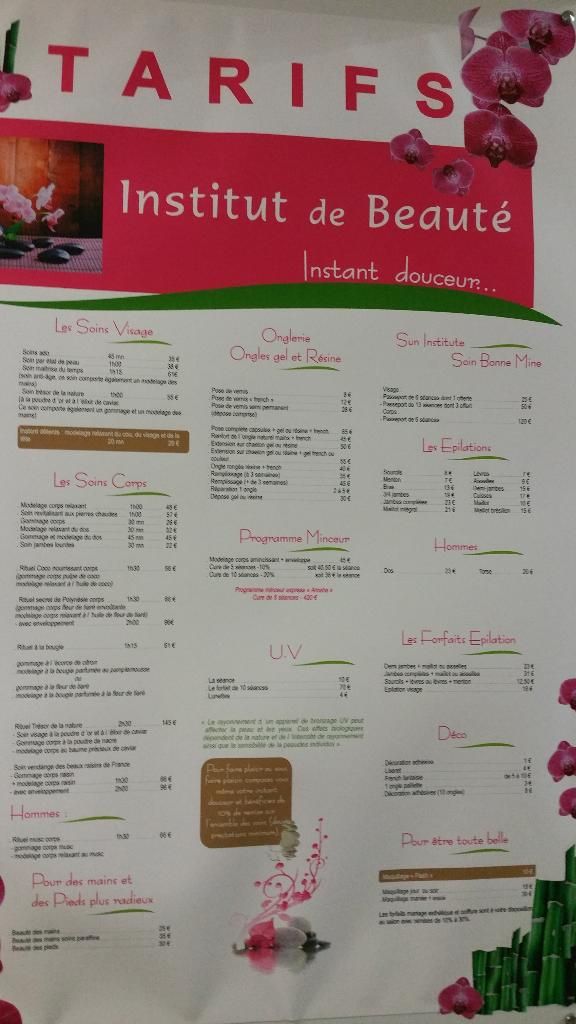 TARIFS
Institut de Beauté
Instant douceur...
Les Soins Visage
Soins ado 45 mn 35 €
Soin par état de peau 1h00 38 €
Soin maîtrise du temps 1h15 61€
(soin anti-âge, ce soin comporte également un modelage des
mains)
Soin trésor de la nature 1h00 55 €
(à la poudre d'or et à l'élixir de caviar.
Ce soin comporte également un gommage et un modelage des
mains)
Instant détente : modelage relaxant du cou, du visage et de la
tête 20 mn 20 €
Les Soins Corps
Modelage corps relaxant 1h00 48 €
Soin revitalisant aux pierres chaudes 1h00 57 €
Gommage corps 30 mn 26 €
Modelage relaxant du dos 30 mn 32 €
Gommage et modelage du dos 45 mn 45 €
Soin jambes lourdes 30 mn 22 €
Rituel Coco nourrissant corps 1h30 66 €
(gommage corps pulpe de coco
modelage relaxant à l'huile de coco)
Rituel secret de Polynésie corps 1h30 66 €
(gommage corps fleur de tiaré envoûtante
modelage corps relaxant à l'huile de fleur de tiaré)
- avec enveloppement 2h00 96€
Rituel à la bougie 1h15 61 €
gommage à l'écorce de citron
modelage à la bougie parfumée au pamplemousse
ou
gommage à la fleur de tiaré
modelage à la bougie parfumée à la fleur de tiaré
Rituel Trésor de la nature 2h30 145 €
- Soin visage à la poudre d'or et à l'élixir de caviar
- Gommage corps à la poudre de nacre
- modelage corps au baume précieux de caviar
Soin vendange des beaux raisins de France
- Gommage corps raisin
+ modelage corps raisin 1h30 66 €
- avec enveloppement 2h00 96 €
Hommes :
Rituel musc corps 1h30 66 €
- gommage corps musc
- modelage corps relaxant au musc
Pour des mains et
des Pieds plus radieux
Beauté des mains 25 €
Beauté des mains soins paraffine 35 €
Beauté des pieds 30 €
Onglerie
Ongles gel et Résine
Pose de vernis 8 €
Pose de vernis « french » 12 €
Pose de vernis semi permanent 28 €
(dépose comprise)
Pose complète capsules + gel ou résine + french 65 €
Renfort de l'ongle naturel mains + french 45 €
Extension sur chablon gel ou résine 50 €
Extension sur chablon gel ou résine + gel french ou
couleur 55 €
Ongle rongés résine + french 40 €
Remplissage (à 3 semaines) 35 €
Remplissage (+ de 3 semaines) 45 €
Réparation 1 ongle 2 à 5 €
Dépose gel ou résine 30 €
Programme Minceur
Modelage corps amincissant + enveloppe 45 €
Cure de 5 séances -10% soit 40.50 € la séance
Cure de 10 séances - 20% soit 36 € la séance
Programme minceur express « Amella »
Cure de 6 séances - 420 €
U.V
La séance 10 €
Le forfait de 10 séances 70 €
Lunettes 4 €
« Le rayonnement d'un appareil de bronzage UV peut
affecter la peau et les yeux. Ces effets biologiques
dépendent de la nature et de l'intensité de rayonnement
ainsi que la sensibilité de la peaudes individus »
Pour faire plaisir ou vous
faire plaisir composez vous
même votre instant
douceur et bénéficiez de
10% de remise sur
l'ensemble des soins (deux
prestations minimum)
Sun Institute
Soin Bonne Mine
Visage :
- Passeport de 6 séances dont 1 offerte 25 €
- Passeport de 13 séances dont 3 offert 50 €
Corps :
- Passeport de 6 séances 120 €
Les Epilations
Sourcils 8 € Lèvres 7 €
Menton 7 € Aisselles 9 €
Bras 13 € Demi-jambes 15 €
3/4 jambes 19 € Cuisses 17 €
Jambes complètes 23 € Maillot 10 €
Maillot intégral 21 € Maillot brésilien 15 €
Hommes
Dos 23 € Torse 20 €
Les Forfaits Epilation
Demi jambes + maillot ou aisselles 23 €
Jambes complètes + maillot ou aisselles 31 €
Sourcils + lèvres ou lèvres + menton 12,50 €
Epilation visage 18 €
Déco
Décoration adhésive 1 €
Liseret 4 €
French fantaisie de 5 à 10 €
1 ongle pailleté 3 €
Décoration adhésives (10 ongles) 8 €
Pour être toute belle
Maquillage « Flash » 10 €
Maquillage jour ou soir 15 €
Maquillage mariée + essai 30 €
Les forfaits mariage esthétique et coiffure sont à votre disposition
au salon avec remises de 10% à 30%.